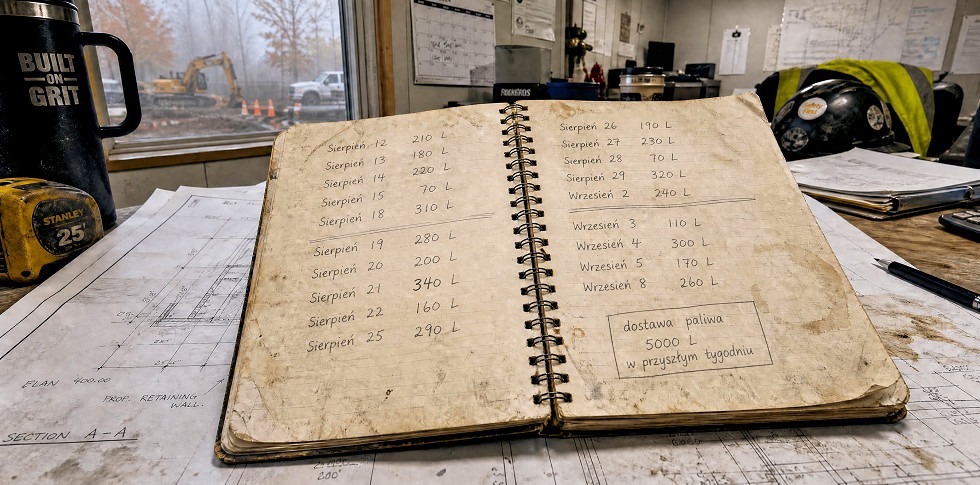 BUILT
ON
GRIT
STANLEY
25'
Sierpień 12 210 L
Sierpień 13 180 L
Sierpień 14 220 L
Sierpień 15 70 L
Sierpień 18 310 L
Sierpień 19 280 L
Sierpień 20 200 L
Sierpień 21 340 L
Sierpień 22 160 L
Sierpień 25 290 L
Sierpień 26 190 L
Sierpień 27 230 L
Sierpień 28 70 L
Sierpień 29 320 L
Wrzesień 2 240 L
Wrzesień 3 110 L
Wrzesień 4 300 L
Wrzesień 5 170 L
Wrzesień 8 260 L
dostawa paliwa
5000 L
w przyszłym tygodniu
ELAN 400.00
PROP. RETAINING
WALL.
SECTION A-A